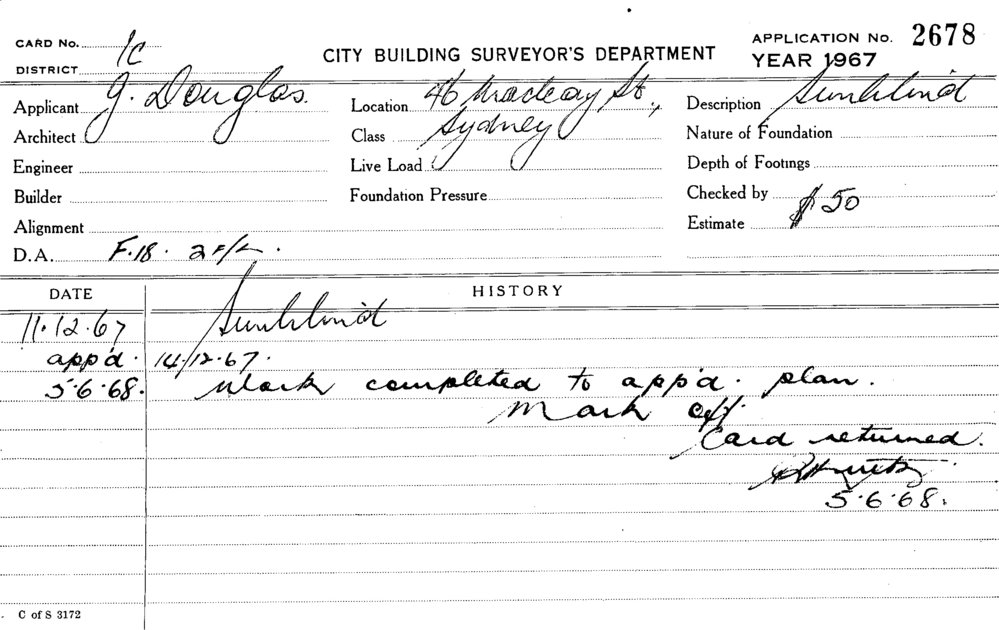 CARD No. 1c
DISTRICT
CITY BUILDING SURVEYOR'S DEPARTMENT
APPLICATION No. 2678
YEAR 1967
Applicant J. Douglas.
Location 46 Macleay St.,
Description Sunblind
Architect
Class Sydney
Nature of Foundation
Engineer
Live Load
Depth of Footings
Builder
Foundation Pressure
Checked by
Alignment
Estimate $50
D.A. F.18.
DATE
HISTORY
11.12.67 Sunblind
app'd. 14.12.67.
5.6.68. Work completed to app'd. plan.
Mark off.
Card returned.
5.6.68.
C of S 3172